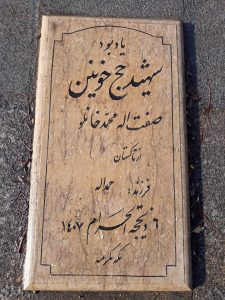 یادبود
شهید حج خونین
صفت اله محمدخانلو
از تاکستان
فرزند: حمداله
۶ ذیحجه الحرام ۱۴۰۷
مکه مکرمه